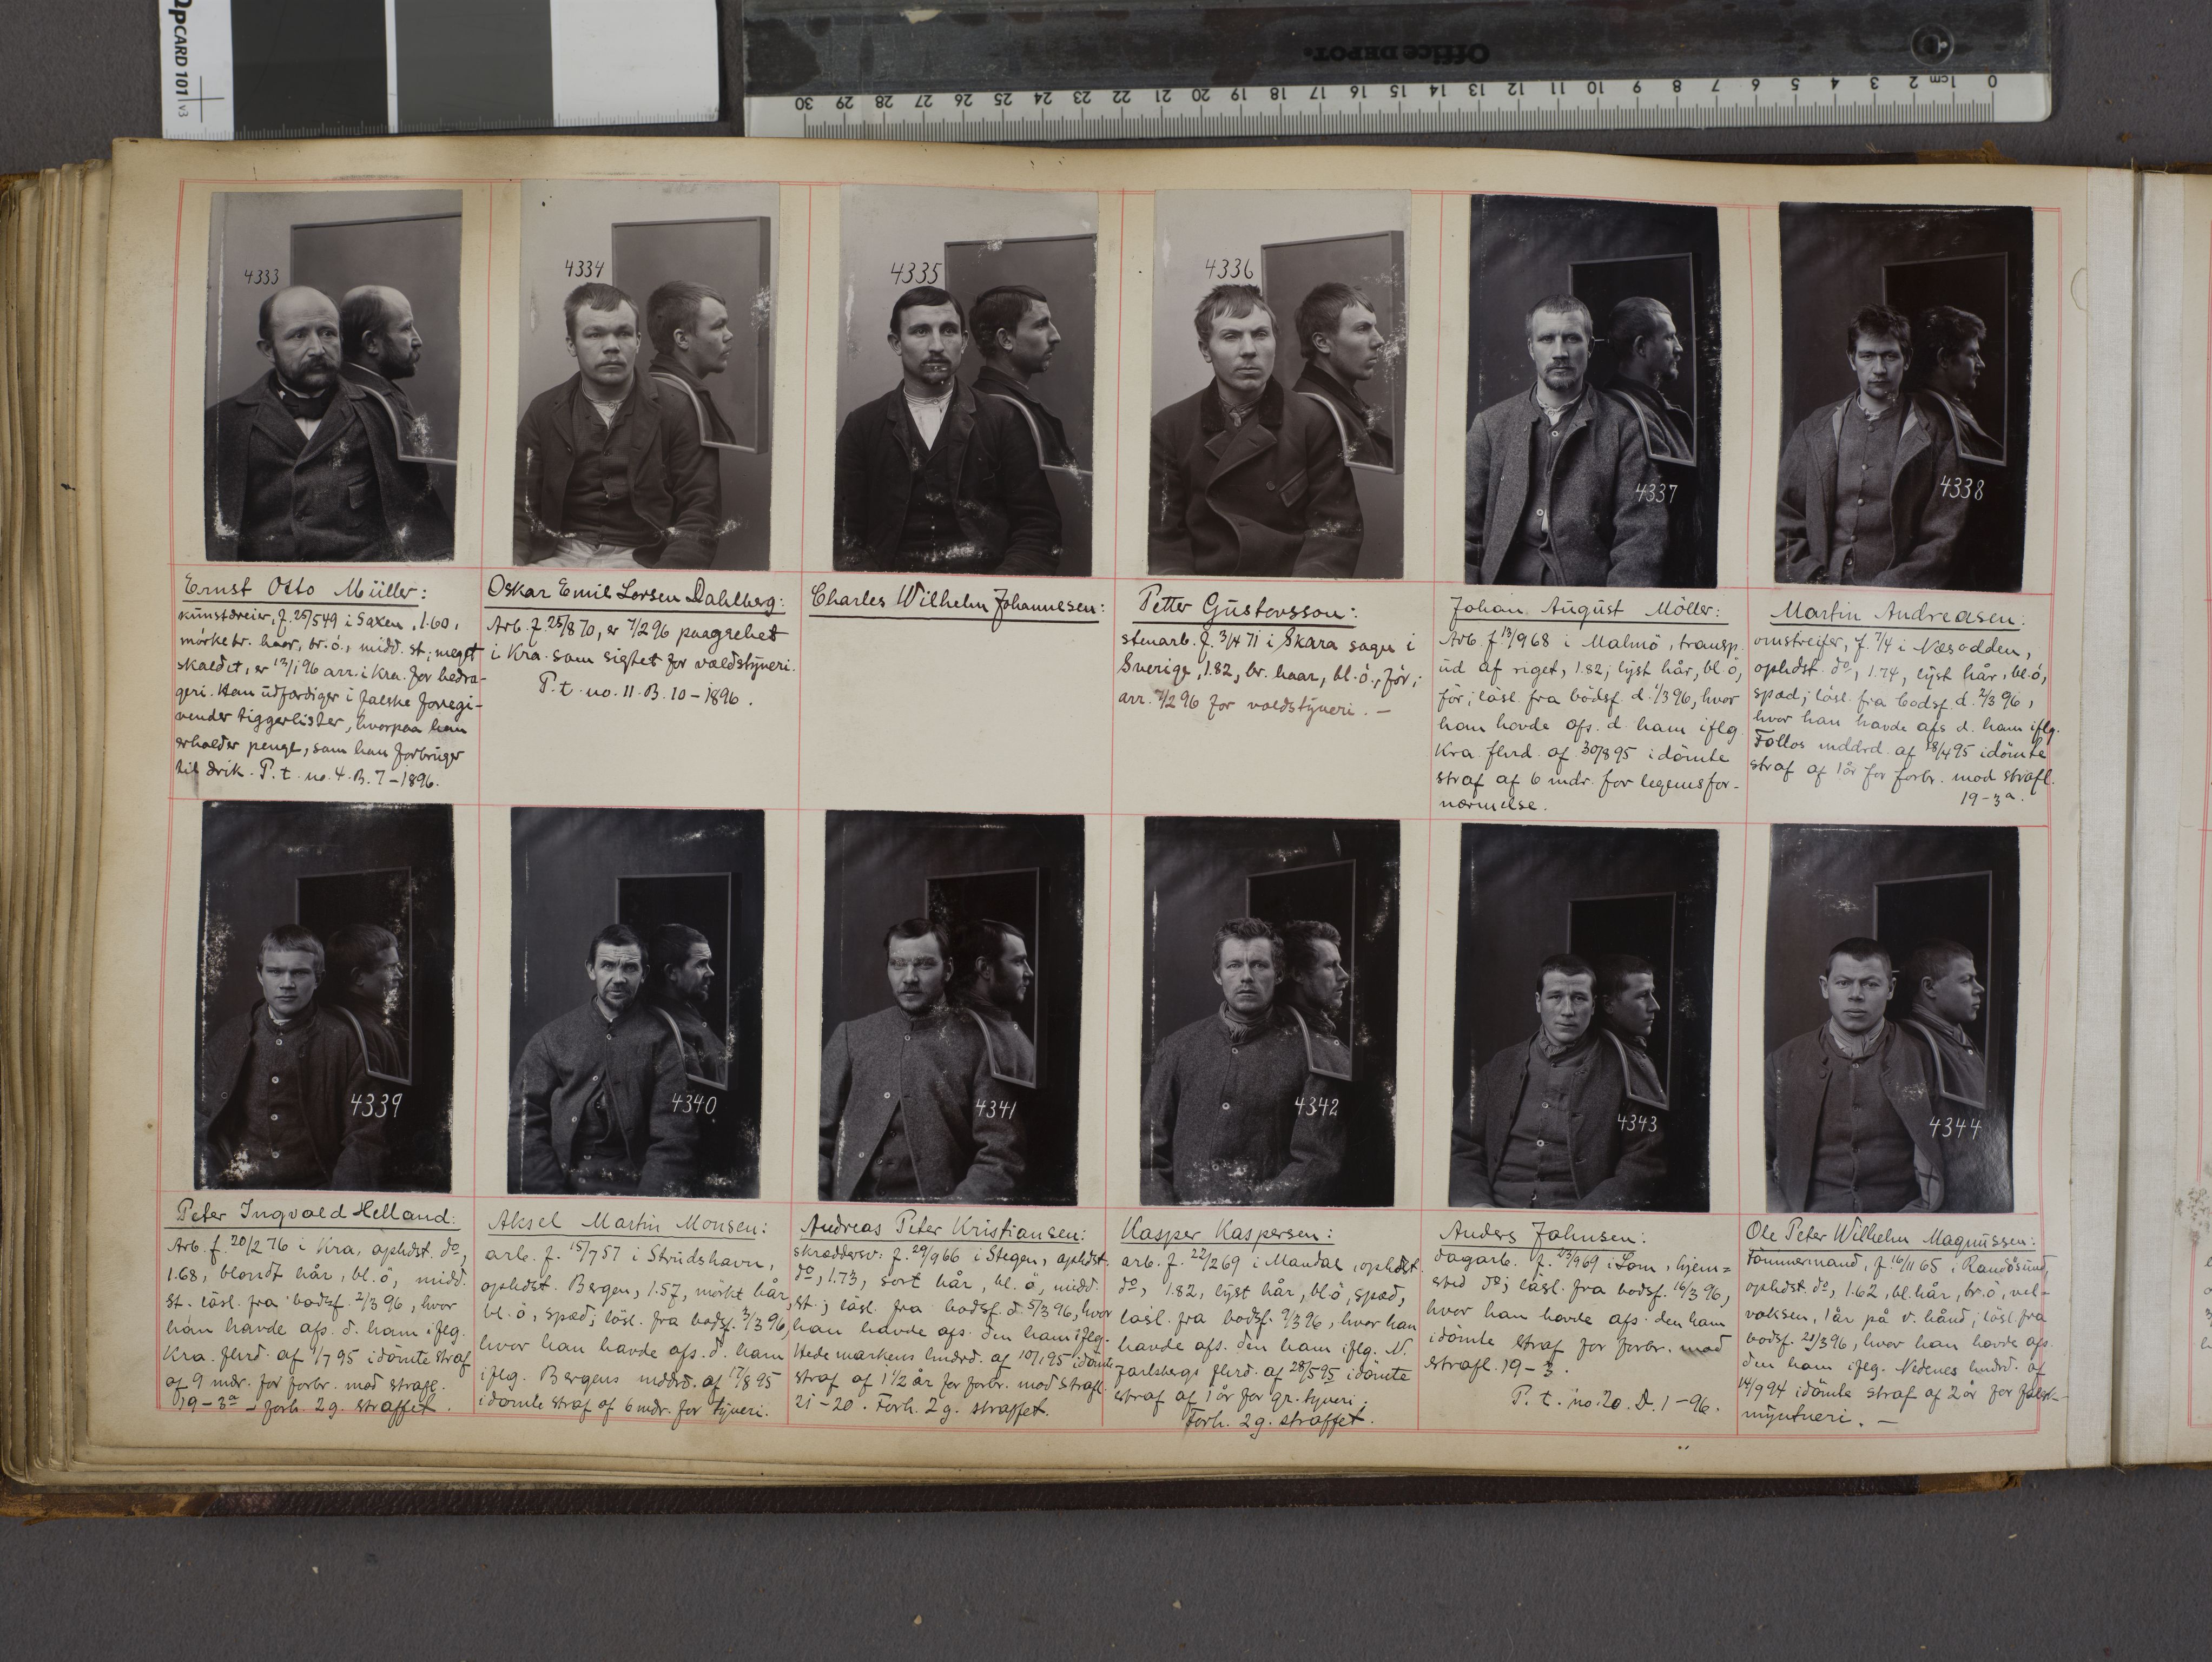 QPCARD 101 v3
Office DEPOT.
0 1cm 2 3 4 5 6 7 8 9 10 11 12 13 14 15 16 17 18 19 20 21 22 23 24 25 26 27 28 29 30
4333
Ernst Otto Müller:
kunstdreier, f. 25/5 49 i Saxen, 1.60,
mörkebr. haar, br. ö., midd. st; meget
skaldet, er 13/1 96 arr. i Kra. for bedra-
geri. Han udfærdiger i falske foregi-
vender tiggerlister, hvorpaa han
erholder penge, som han forbruger
til drik. P. t. no. 4. B. 7 - 1896.
4334
Oskar Emil Larsen Dahlberg:
Arb. f. 28/8 70, er 7/2 96 paagrebet
i Kra. som sigtet for voldstyveri.
P. t. no. 11. B. 10 - 1896.
4335
Charles Wilhelm Johannesen:
4336
Petter Gustavsson:
stenarb. f. 3/4 71 i Skara sogn i
Sverige, 1.82, br. haar, bl. ö., för;
arr. 7/2 96 for voldstyveri. -
4337
Johan August Möller:
Arb. f 13/9 68 i Malmö, transp.
ud af riget, 1.82, lyst hår, bl. ö,
för; lösl. fra bödsf. d. 1/3 96, hvor
han havde afs. d. ham iflg.
Kra. flrd. af 30/8 95 idömte
straf af 6 mdr. for legemsfor-
nærmelse.
4338
Martin Andreasen:
omstreifer, f. 7/4 i Næsodden,
ophdst. do, 1.74, lyst hår, bl. ö,
spæd; lösl. fra bodsf. d. 2/3 96,
hvor han havde afs d. ham iflg.
Follos mddrd. af 18/4 95 idömte
straf af 1 år for forbr. mod strafl.
19-3a.
4339
Peter Ingvald Helland:
Arb. f. 20/2 76 i Kra, ophdst. do,
1.68, blondt hår, bl. ö, midd.
st. lösl. fra bodsf. 2/3 96, hvor
han havde afs. d. ham iflg.
Kra. flrd. af 1/7 95 idömte straf
af 9 mdr. for forbr. mod strafl.
19-3a - forh. 2 g. straffet.
4340
Aksel Martin Monsen:
arb. f. 15/7 57 i Strudshavn,
ophdst. Bergen, 1.57, mörkt hår,
bl. ö, spæd; lösl. fra bodsf. 3/3 96,
hvor han havde afs. d. ham
iflg. Bergens mddrd. af 17/8 95
idömte straf af 6 mdr. for tyveri.
4341
Andreas Peter Kristiansen:
skræddersv: f. 29/9 66 i Stegen, ophdst.
do, 1.73, sort hår, bl. ö, midd.
st.; lösl. fra bodsf. d. 5/3 96, hvor
han havde afs. den ham iflg.
Hedemarkens lmdrd. af 10/1 95 idömte
straf af 1 1/2 år for forbr. mod strafl.
21-20. Forh. 2 g. straffet.
4342
Kasper Kaspersen:
arb. f. 22/2 69 i Mandal, ophdst.
do, 1.82, lyst hår, bl. ö, spæd,
lösl. fra bodsf. 9/3 96, hvor han
havde afs. den ham iflg. N.
Jarlsbergs flrd. af 28/5 95 idömte
straf af 1 år for gr. tyveri;
Forh. 2 g. straffet.
4343
Anders Jahnsen:
dagarb. f. 23/9 69 i Lom, hjem=
sted do; lösl. fra bodsf. 16/3 96,
hvor han havde afs. den ham
idömte straf for forbr. mod
strafl. 19-3.
P. t. no. 20. D. 1 - 96.
4344
Ole Peter Wilhelm Magnussen:
Tömmermand, f. 16/11 65 i Randösund,
ophdst. do, 1.62, bl. hår, br. ö, vel-
voksen, 1 år på v. hånd; lösl. fra
bodsf. 21/3 96, hvor han havde afs.
den ham iflg. Nedenes lmdrd. af
14/9 94 idömte straf af 2 år for falsk-
myntneri. -